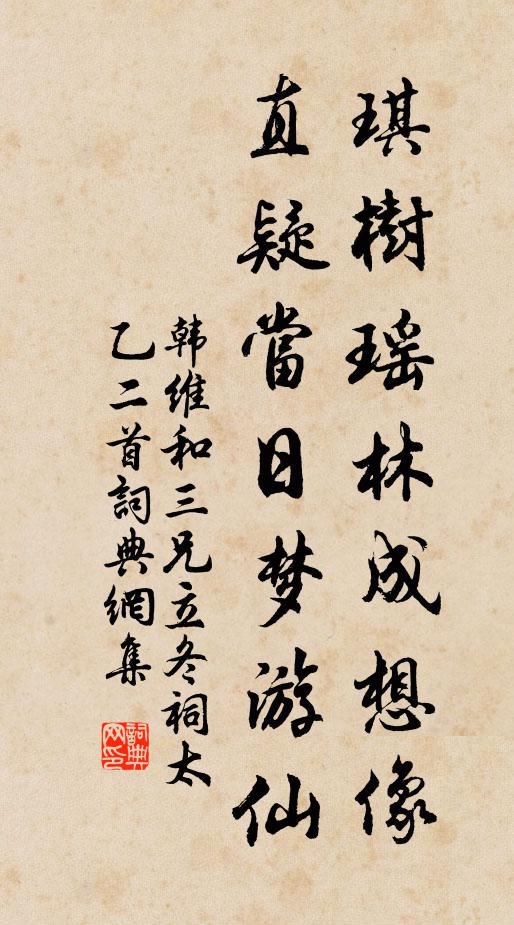 琪樹瑶林成想像
直疑當日梦游仙
韩维和三兄立冬祠太
乙二首詞典網集
詞典网印